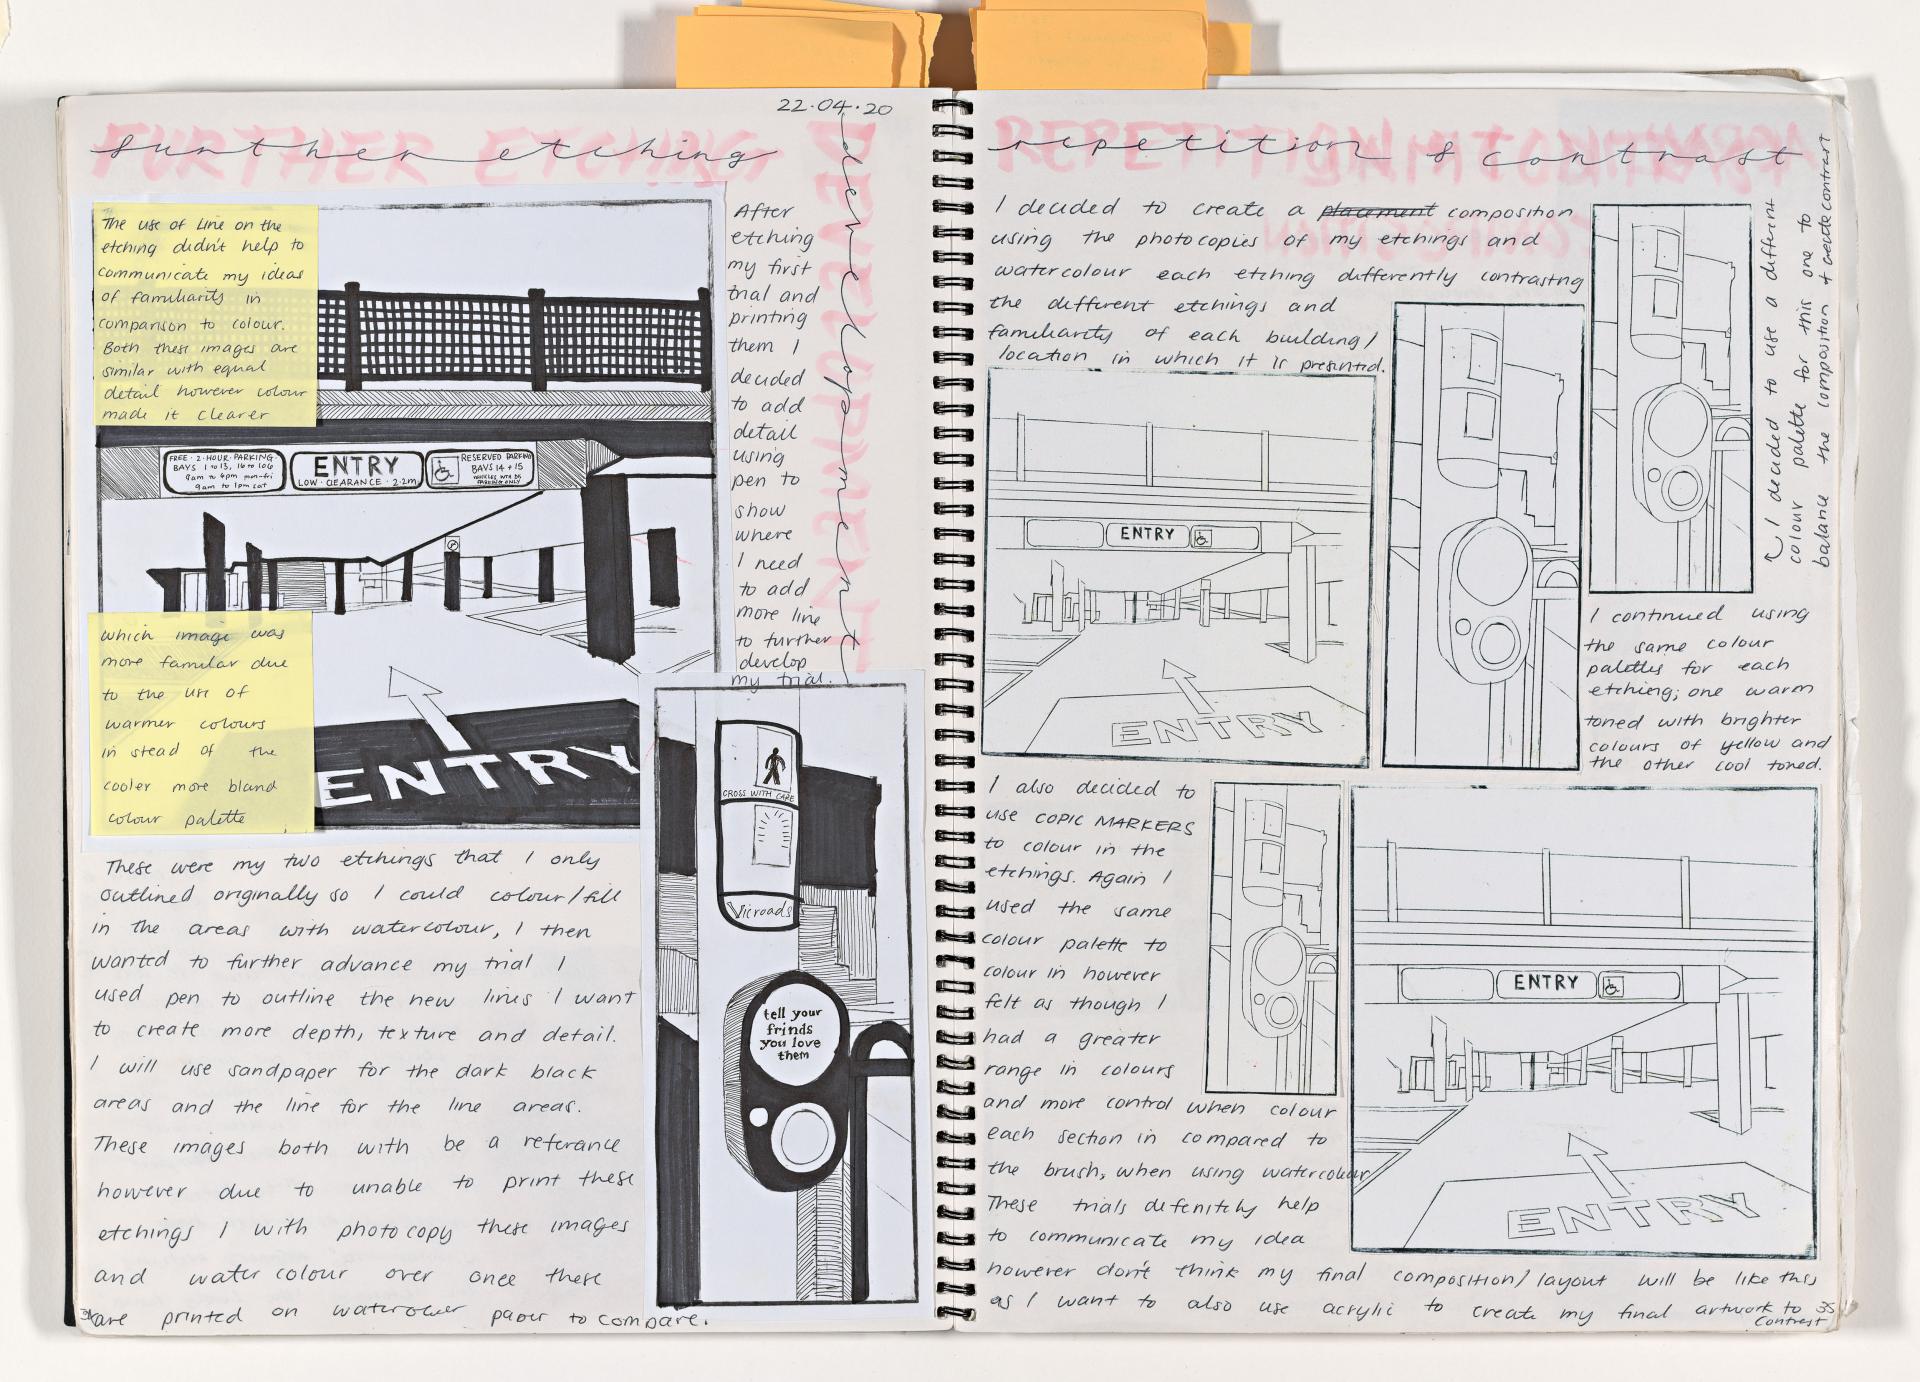 22.04.20
FURTHER ETCHING
further etching
DEVELOPMENT
development
The use of Line on the
etching didn't help to
communicate my ideas
of familiarity in
comparison to colour.
Both these images are
similar with equal
detail however colour
made it clearer
After
etching
my first
trial and
printing
them I
decided
to add
detail
using
pen to
show
where
I need
to add
more line
to further
develop
my trial.
FREE · 2·HOUR·PARKING·
BAYS 1 to 13, 16 to 106
9am to 4pm mon-fri
9am to 1pm sat
ENTRY
LOW · CLEARANCE · 2.2m
RESERVED PARKING
BAYS 14 + 15
PARKING ONLY
which image was
more familar due
to the use of
warmer colours
in stead of the
cooler more bland
colour palette
ENTRY
CROSS WITH CARE
Vicroads
tell your
frinds
you love
them
These were my two etchings that I only
outlined originally so I could colour/fill
in the areas with watercolour, I then
wanted to further advance my trial I
used pen to outline the new lines I want
to create more depth, texture and detail.
I will use sandpaper for the dark black
areas and the line for the line areas.
These images both with be a referance
however due to unable to print these
etchings I with photocopy these images
and water colour over once these
are printed on watercolour paper to compare.
REPETITION
repetition & contrast
I decided to create a placement composition
using the photocopies of my etchings and
watercolour each etching differently contrasting
the different etchings and
familiarity of each building/
location in which it is presented.
I decided to use a different
colour palette for this one to
balance the composition + create contrast
ENTRY
ENTRY
I continued using
the same colour
palettes for each
etching; one warm
toned with brighter
colours of yellow and
the other cool toned.
I also decided to
use COPIC MARKERS
to colour in the
etchings. Again I
used the same
colour palette to
colour in however
felt as though I
had a greater
range in colours
and more control when colour
each section in compared to
the brush, when using watercolour
These trials defenitely help
to communicate my idea
however don't think my final composition/layout will be like this
as I want to also use acrylic to create my final artwork to
contrast
35
ENTRY
ENTRY